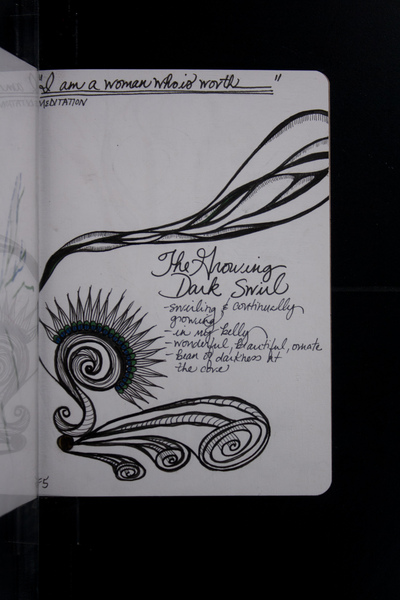 "I am a woman who is worth ___"
MEDITATION
The Growing
Dark Swirl
- swirling & continually
growing
- in my belly
- wonderful, beautiful, ornate
- Bean of darkness at
the core
F5